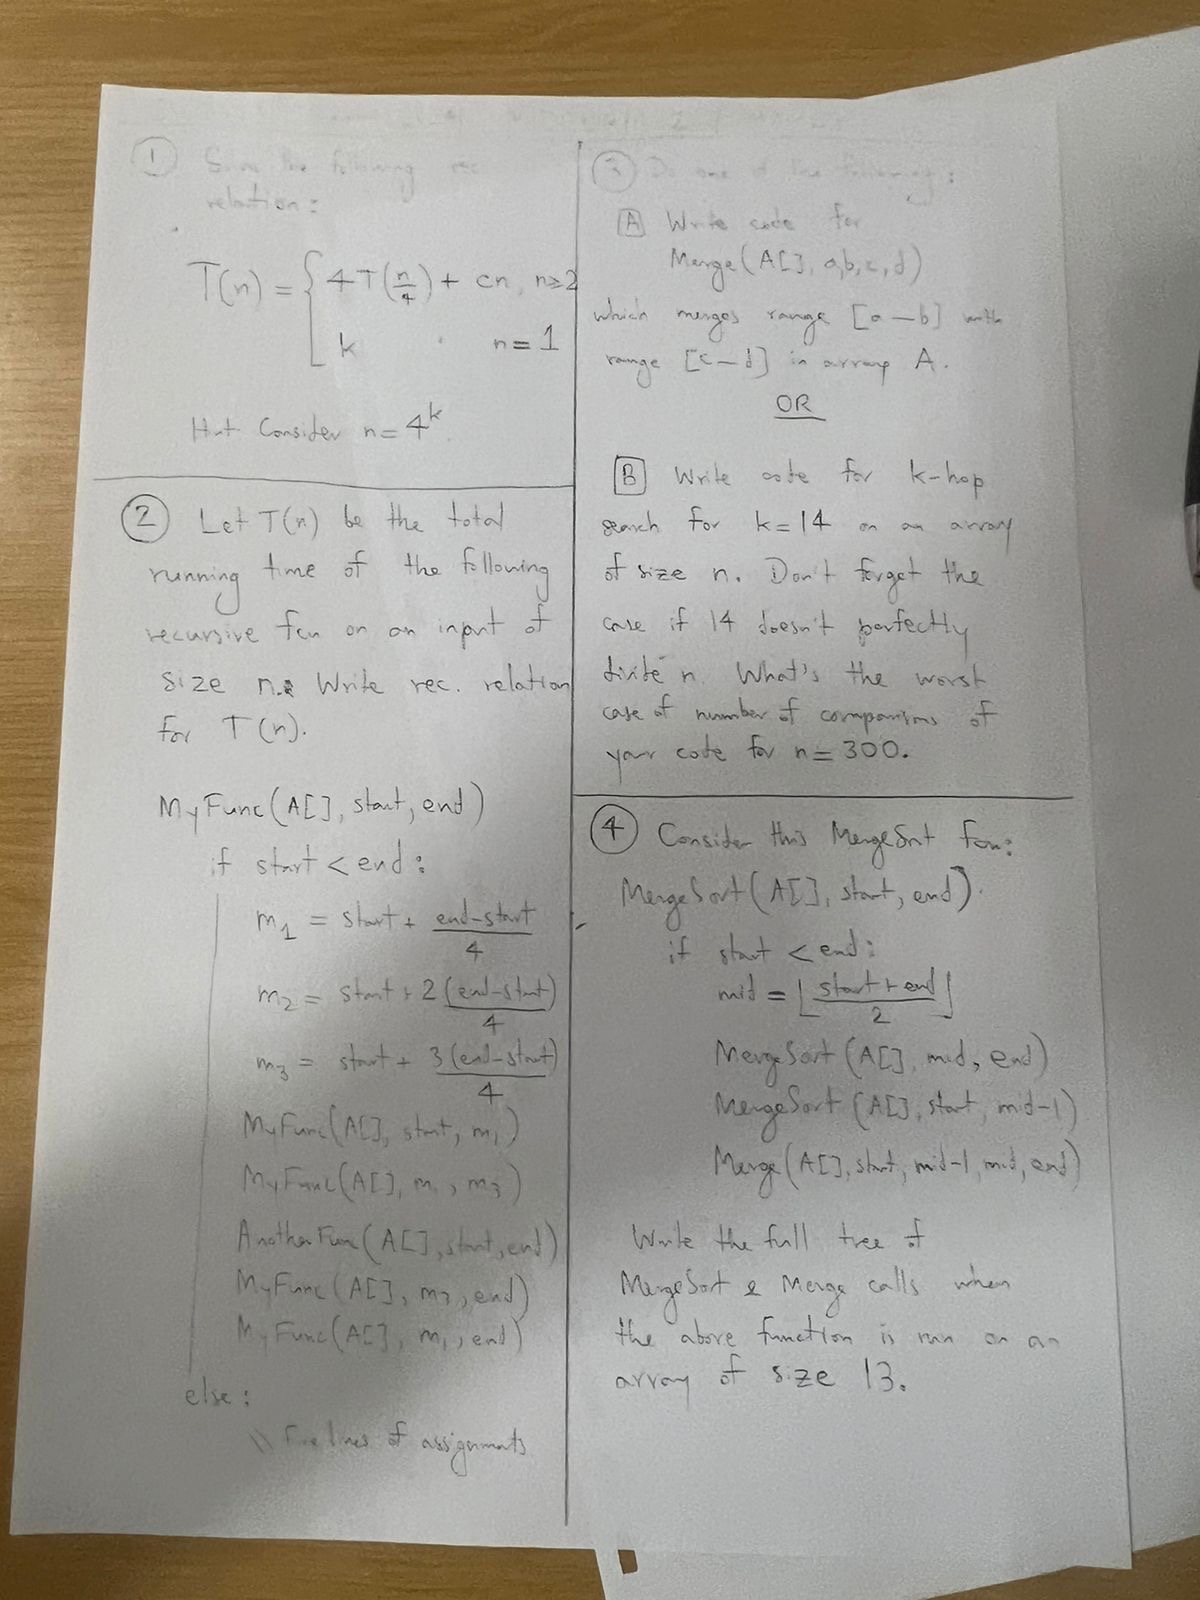 1
the following rec
relation:
T(n) = { 4T(n/4) + cn, n≥2
k n=1
Hint Consider n=4^k
2 Let T(n) be the total
running time of the following
recursive fcn on an input of
size n. Write rec. relation
for T(n).
MyFunc(A[], start, end)
if start < end:
m1 = start + end-start/4
m2 = start + 2(end-start)/4
m3 = start + 3(end-start)/4
MyFunc(A[], start, m1)
MyFunc(A[], m1, m3)
AnotherFunc(A[], start, end)
MyFunc(A[], m3, end)
MyFunc(A[], m1, end)
else:
\\ Five lines of assignments
3 Do one of the following:
A Write code for
Merge(A[], a,b,c,d)
which merges range [a-b] with
range [c-d] in array A.
OR
B Write code for k-hop
search for k=14 on an array
of size n. Don't forget the
case if 14 doesn't perfectly
divide n. What's the worst
case of number of comparisons of
your code for n=300.
4 Consider this MergeSort fcn:
MergeSort(A[], start, end)
if start < end:
mid = ⌊start+end/2⌋
MergeSort(A[], mid, end)
MergeSort(A[], start, mid-1)
Merge(A[], start, mid-1, mid, end)
Write the full tree of
MergeSort & Merge calls when
the above function is run on an
array of size 13.